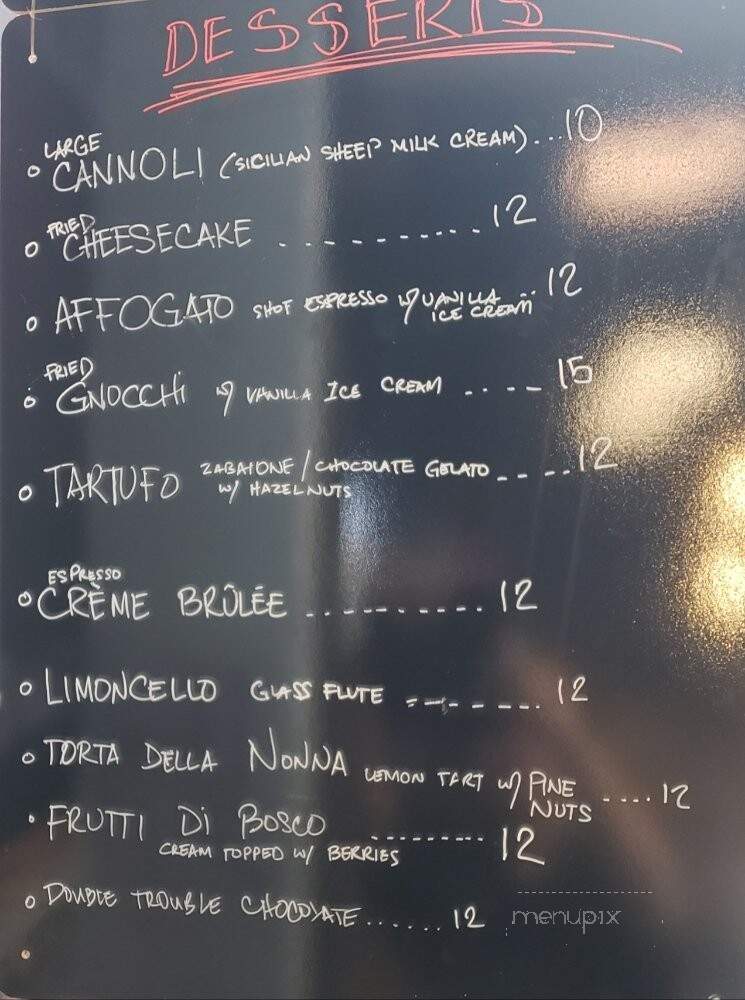 DESSERTS
LARGE
CANNOLI (SICILIAN SHEEP MILK CREAM)...10
FRIED
CHEESECAKE ........... 12
AFFOGATO SHOT ESPRESSO W/ VANILLA .. 12
ICE CREAM
FRIED
GNOCCHI W/ VANILLA ICE CREAM .... 15
TARTUFO ZABAIONE / CHOCOLATE GELATO ..... 12
W/ HAZELNUTS
ESPRESSO
CRÈME BRÛLÉE .......... 12
LIMONCELLO GLASS FLUTE ....... 12
TORTA DELLA NONNA LEMON TART W/ PINE .... 12
NUTS
FRUTTI Di BOSCO ......... 12
CREAM TOPPED W/ BERRIES
DOUBLE TROUBLE CHOCOLATE...... 12
menupix